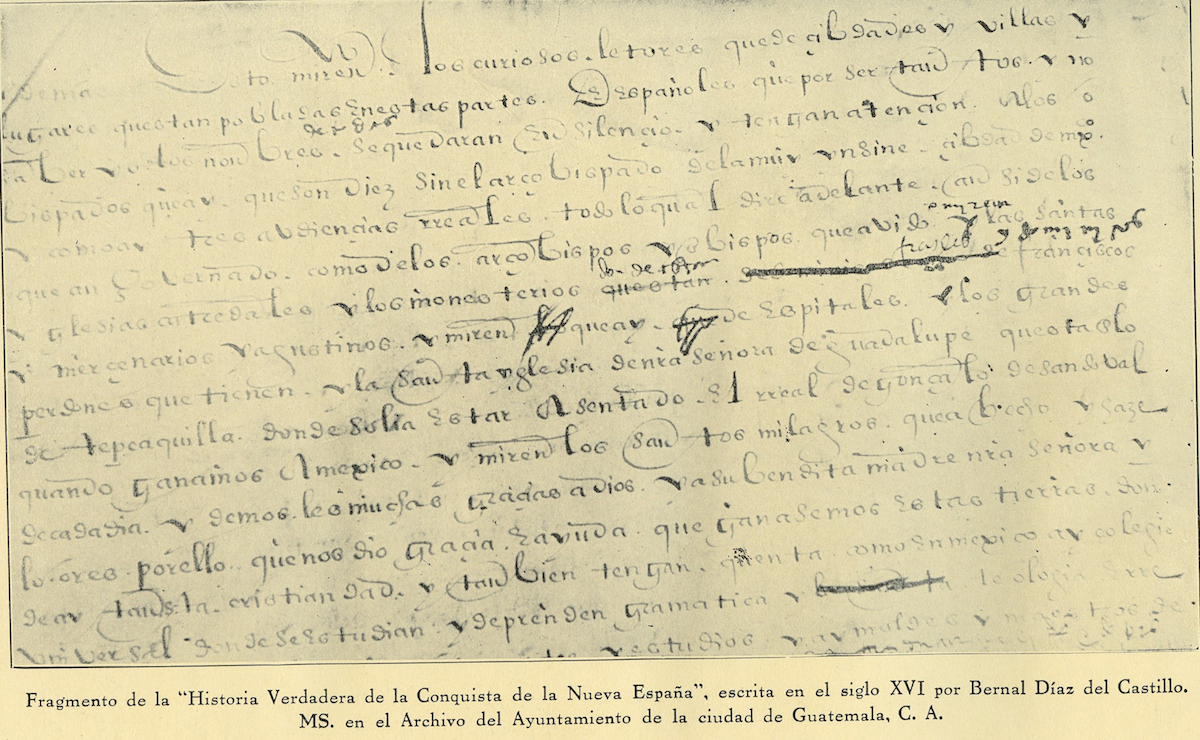 miren los curiosos letores que de çibdades y villas y
lugares questan pobladas en estas partes. De Españoles que por ser tan tos. y no
saber yo los nonbres de todas se quedaran En silençio. y tengan atençion. A los o
bispados que ay. que son Diez sin el arçobispado de la muy ynsine. çibdad de mxco.
y como ay tres avdiençias rreales. todo lo qual dire adelante. an si de los
que an governado. como de los. arçobispos y obispos. que a vido. y las santas
y yglesias catredales y los monesterios questan frayles de françiscos
y merçenarios y agustinos. y miren que ay de Espitales. y los grandes
perdones que tienen. y la san ta yglesia de nra señora de guadalupe questa En lo
de tepeaquilla. donde solia Estar Asentado. El rreal de gonçalo de sandoval
quando ganamos A mexico. y miren los san tos milagros. que a hecho y haze
de cada dia. y demos les muchas graçias a dios. y a su bendita madre nra señora y
lo ores por ello. que nos dio graçia E ayuda. que ganasemos Estas tierras. don
de ay tan ta. cristiandad. y tan bien tengan. quenta. como En mexico ay colegio
vniversal donde se Estudian. y deprenden gramatica y teologia E rre
y estudios y ay moldes y maestros de
Fragmento de la "Historia Verdadera de la Conquista de la Nueva España", escrita en el siglo XVI por Bernal Díaz del Castillo.
MS. en el Archivo del Ayuntamiento de la ciudad de Guatemala, C. A.